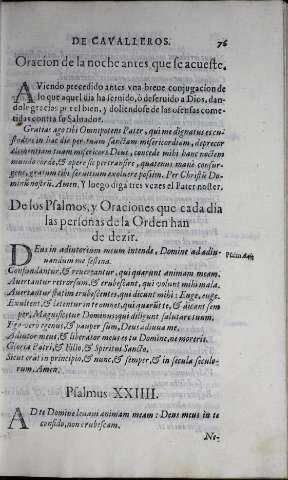 DE CAVALLEROS. 76
Oracion de la noche antes que se acueste.
AViendo precedido antes vna breue conjugacion de
lo que aquel dia ha seruido, ò deseruido a Dios, dan-
dole gracias por el bien, y doliendose de las ofensas come-
tidas contra su Saluador.
Gratias ago tibi Omnipotens Pater, qui me dignatus es cu-
stodire in hac die per tuam sanctam misericordiam, deprecor
clementiam tuam misericors Deus, concede mihi hanc noctem
mundo corde, & opere sic pertransire, quatenus manè consur-
gens, gratum tibi seruitium exoluere possim. Per Christũ Do-
minũ nostrũ. Amen. Y luego diga tres vezes el Pater noster.
De los Psalmos, y Oraciones que cada dia
las personas de la Orden han
de dezir.
DEus in adiutorium meum intende, Domine ad adiu-
uandum me festina.
Confundantur, & reuereantur, qui quærunt animam meam.
Auertantur retrorsum, & erubescant, qui volunt mihi mala.
Auertantur statim erubescentes, qui dicunt mihi: Euge, euge.
Exultent, & lætentur in te omnes qui quærũt te, & dicant sem
per, Magnificetur Dominus: qui diligunt salutare tuum.
Ego vero egenus, & pauper sum, Deus adiuua me.
Adiutor meus, & liberator meus es tu Domine, ne moreris.
Gloria Patri, & Filio, & Spiritui Sancto.
Sicut erat in principio, & nunc, & semper, & in secula seculo-
rum. Amen.
Psalmus XXIIII.
AD te Domine leuaui animam meam: Deus meus in te
confido, non erubescam.
Ne-